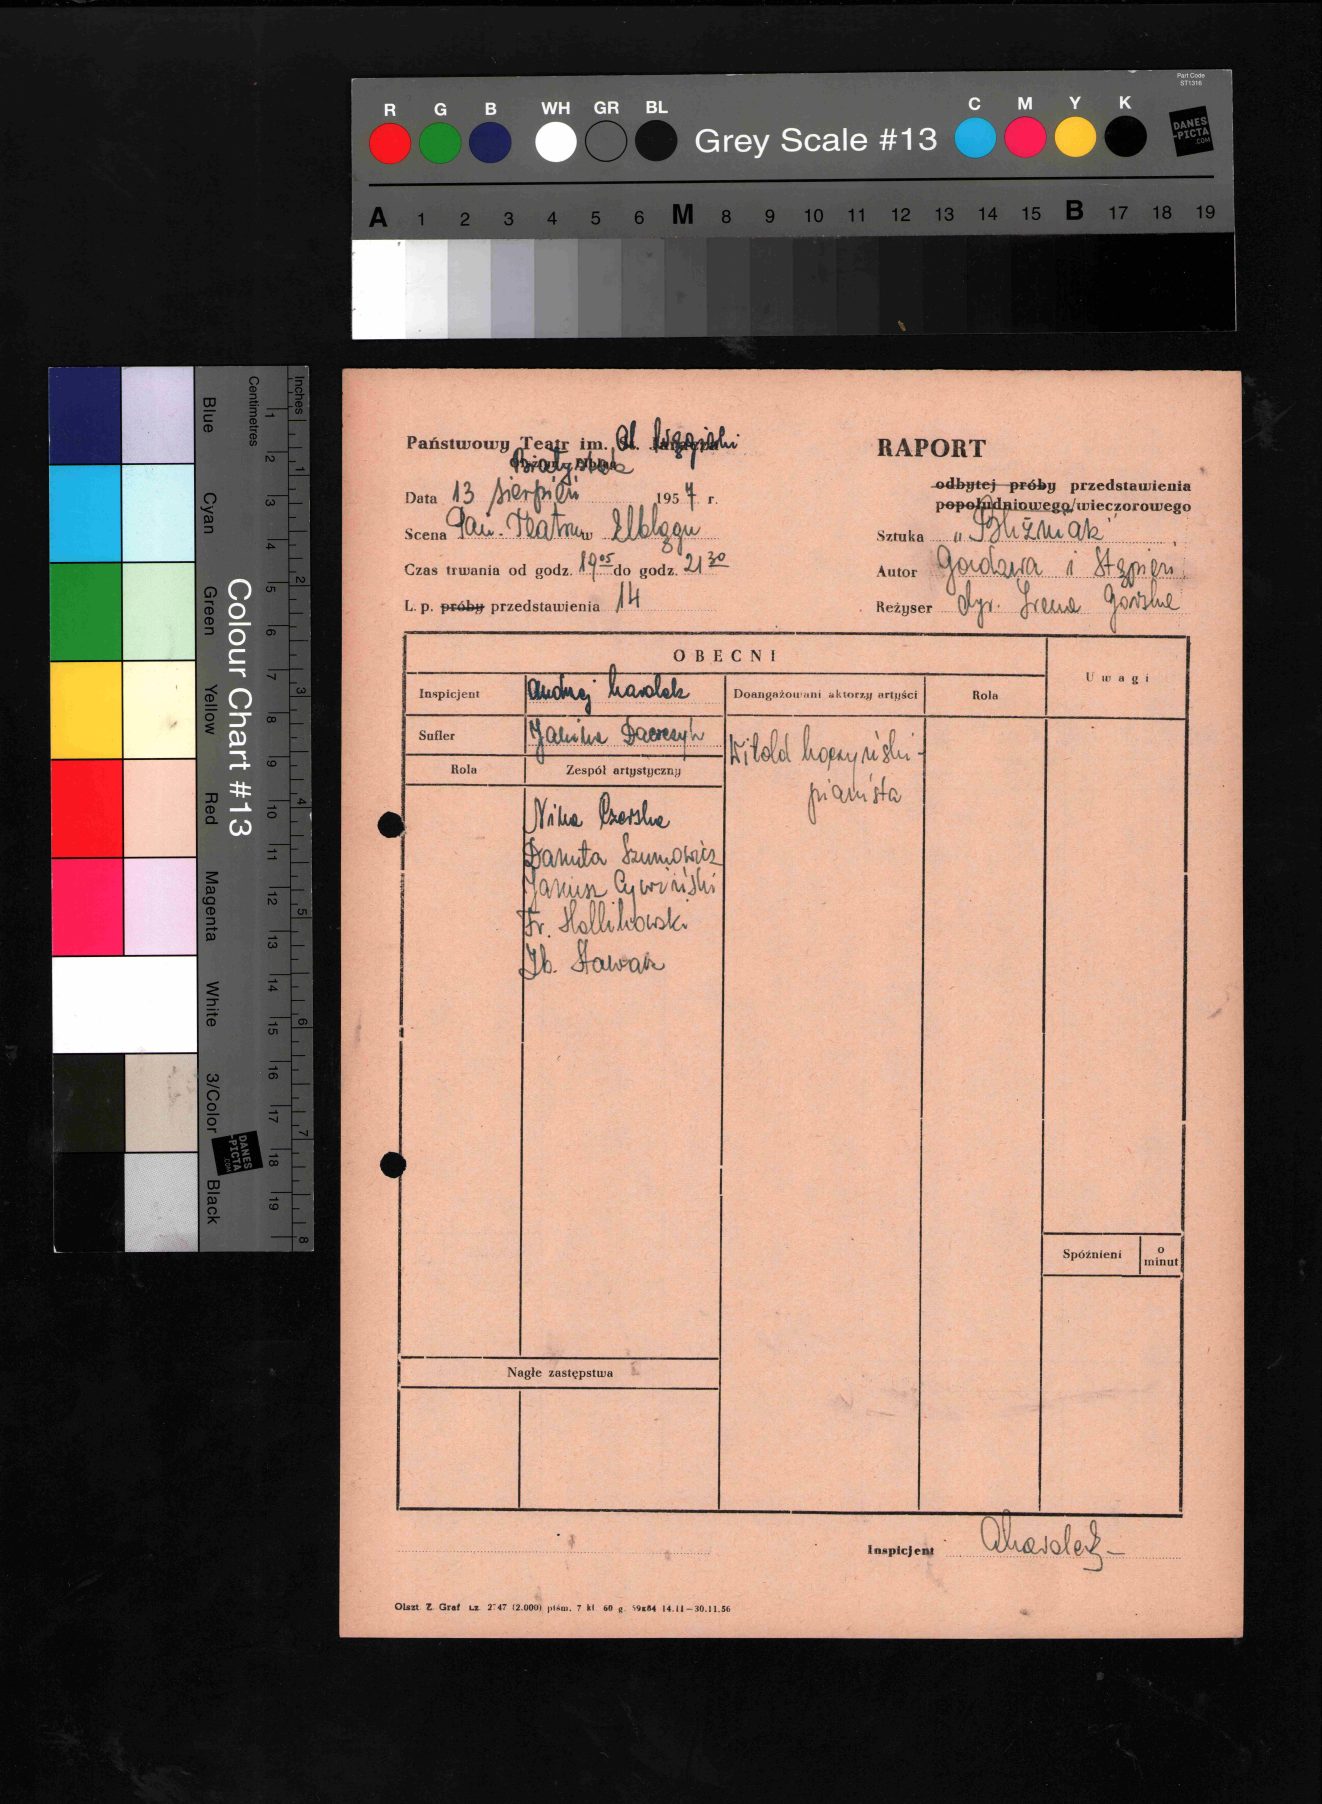 Part Code
ST1316
R G B WH GR BL Grey Scale #13 C M Y K
DANES
-PICTA
.COM
A 1 2 3 4 5 6 M 8 9 10 11 12 13 14 15 B 17 18 19
Colour Chart #13
Blue Cyan Green Yellow Red Magenta White 3/Color Black
Centimetres 1 2 3 4 5 6 7 8 9 10 11 12 13 14 15 16 17 18 19
Inches 1 2 3 4 5 6 7 8
DANES
-PICTA
.COM
Państwowy Teatr im. Al. Węgierki
Białystok
RAPORT
odbytej próby przedstawienia
popołudniowego/wieczorowego
Data 13 sierpień 1957 r.
Scena Pań. Teatru w Elblągu
Sztuka „Bliźniak"
Czas trwania od godz. 19 05 do godz. 21 30
Autor Gozdawa i Stępień
L. p. próby przedstawienia 14
Reżyser dyr. Irena Górska
OBECNI
Uwagi
Inspicjent Andrzej Karolak
Doangażowani aktorzy artyści Rola
Sufler Janina
Witold
pianista
Rola Zespół artystyczny
Nina Czerska
Danuta Szumowicz
Janusz Cywiński
Fr.
Zb. Stawarz
Spóźnieni o minut
Nagłe zastępstwa
Inspicjent AKarolak
Olszt Z. Graf Lz. 2747 (2.000) piśm. 7 kl 60 g. 59x84 14.11—30.11.56